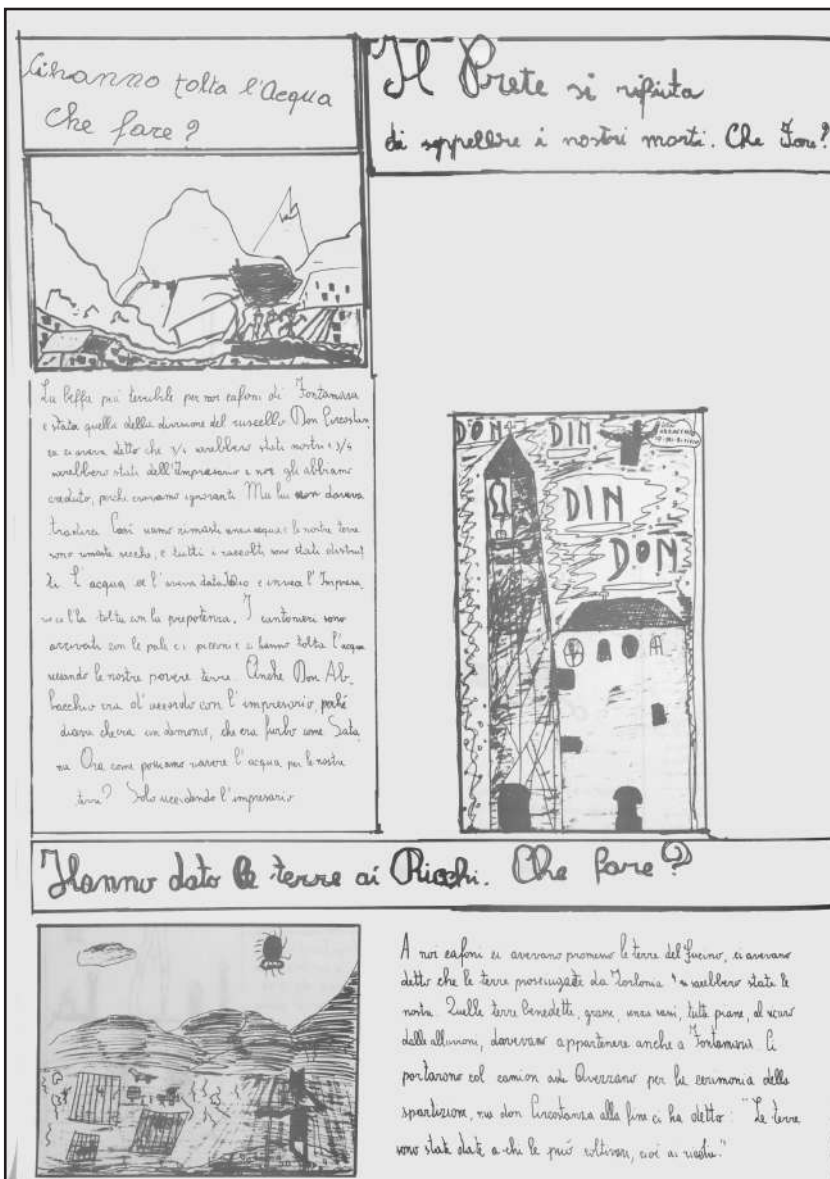 Ci hanno tolta l'Acqua
che fare?
Il Prete si rifiuta
di seppellire i nostri morti. Che Fare?
La beffa più terribile per noi cafoni di Fontamara
è stata quella della divisione del ruscello Don Circostan
za ci aveva detto che 3/4 sarebbero stati nostri e 3/4
sarebbero stati dell'Impresario e noi gli abbiamo
creduto, perché eravamo ignoranti Ma lui non doveva
tradirci Così siamo rimasti senza acqua: le nostre terre
sono rimaste secche, e tutti i raccolti, sono stati distrut
ti L'acqua ce l'aveva data Iddio e invece l'Impresa
rio ce l'ha tolta con la prepotenza. I cantonieri sono
arrivati con le pale e i picconi e ci hanno tolta l'acqua
seccando le nostre povere terre Anche Don Ab
bacchio era d'accordo con l'impresario, perché
diceva che era un demonio, che era furbo come Sata
na Ora come possiamo riavere l'acqua per le nostre
terre? Solo uccidendo l'impresario
DON DIN
DIN
DON
Hanno dato le terre ai Ricchi. Che fare?
A noi cafoni ci avevano promesso le terre del Fucino, ci avevano
detto che le terre prosciugate da Torlonia sarebbero state le
nostre Quelle terre benedette, grasse, senza sassi, tutte piane, al sicuro
dalle alluvioni, dovevano appartenere anche a Fontamara Ci
portarono col camion ad Avezzano per la cerimonia della
spartizione, ma don Circostanza alla fine ci ha detto: "Le terre
sono state date a chi le può coltivare, cioè ai ricchi."